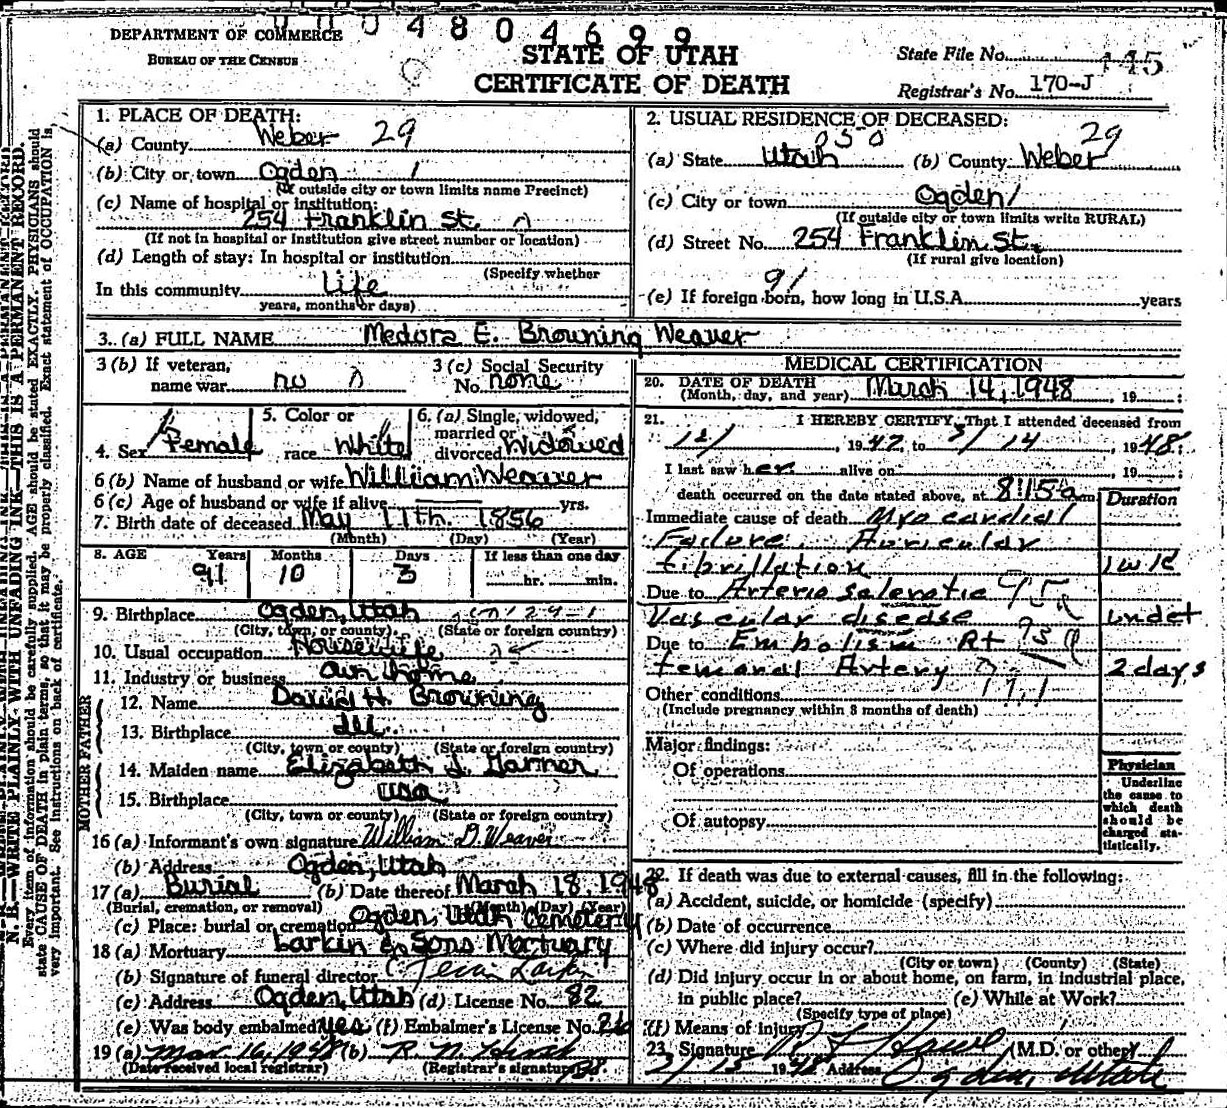 0004804699
DEPARTMENT OF COMMERCE
BUREAU OF THE CENSUS
STATE OF UTAH
CERTIFICATE OF DEATH
State File No. 445
Registrar's No. 170-J
N. B.—WRITE PLAINLY WITH UNFADING INK—THIS IS A PERMANENT RECORD.
Every item of information should be carefully supplied. AGE should be stated EXACTLY. PHYSICIANS should
state CAUSE OF DEATH in plain terms, so that it may be properly classified. Exact statement of OCCUPATION is
very important. See instructions on back of certificate.
1. PLACE OF DEATH:
(a) County Weber 29
(b) City or town Ogden 1
(If outside city or town limits name Precinct)
(c) Name of hospital or institution:
254 Franklin St.
(If not in hospital or institution give street number or location)
(d) Length of stay: In hospital or institution
(Specify whether
In this community Life
years, months or days)
2. USUAL RESIDENCE OF DECEASED:
050 29
(a) State Utah (b) County Weber
(c) City or town Ogden 1
(If outside city or town limits write RURAL)
(d) Street No. 254 Franklin St.
(If rural give location)
91
(e) If foreign born, how long in U.S.A. years
3. (a) FULL NAME Medora E. Browning Weaver
3 (b) If veteran,
name war no
3 (c) Social Security
No. none
4. Sex Female
5. Color or
race White
6. (a) Single, widowed,
married or
divorced Widowed
6 (b) Name of husband or wife William Weaver
6 (c) Age of husband or wife if alive yrs.
7. Birth date of deceased May 11th. 1856
(Month) (Day) (Year)
8. AGE Years Months Days If less than one day
91 10 3 hr. min.
9. Birthplace Ogden, Utah 29-1
(City, town, or county) (State or foreign country)
10. Usual occupation Housewife
11. Industry or business own home
FATHER
12. Name David H. Browning
13. Birthplace Ill.
(City, town or county) (State or foreign country)
MOTHER
14. Maiden name Elizabeth J. Garner
15. Birthplace usa
(City, town or county) (State or foreign country)
16 (a) Informant's own signature William D. Weaver
(b) Address Ogden, Utah
17 (a) Burial (b) Date thereof March 18, 1948
(Burial, cremation, or removal) (Month) (Day) (Year)
(c) Place: burial or cremation Ogden, Utah Cemetery
18 (a) Mortuary Larkin & Sons Mortuary
(b) Signature of funeral director Larkin
(c) Address Ogden, Utah (d) License No. 82
(e) Was body embalmed? yes (f) Embalmer's License No. 216
19 (a) Mar. 16, 1948 (b) R. N. Hirst
(Date received local registrar) (Registrar's signature)
MEDICAL CERTIFICATION
20. DATE OF DEATH
(Month, day, and year) March 14, 1948, 19
21. I HEREBY CERTIFY, That I attended deceased from
12/ , 1942, to 3/14 , 1948.
I last saw her alive on , 19
death occurred on the date stated above, at 8:15 a m.
Duration
Immediate cause of death Myocardial
Failure, Auricular
fibrillation 1 wk
Due to Arterio Sclerotic
Vascular disease undet
Due to Embolism Rt
femoral Artery 2 days
Other conditions
(Include pregnancy within 3 months of death)
Major findings:
Of operations
Of autopsy
Physician
Underline
the cause to
which death
should be
charged sta-
tistically.
22. If death was due to external causes, fill in the following:
(a) Accident, suicide, or homicide (specify)
(b) Date of occurrence
(c) Where did injury occur?
(City or town) (County) (State)
(d) Did injury occur in or about home, on farm, in industrial place,
in public place? (e) While at Work?
(Specify type of place)
(f) Means of injury
23. Signature (M.D. or other)
1948 Address Ogden, Utah